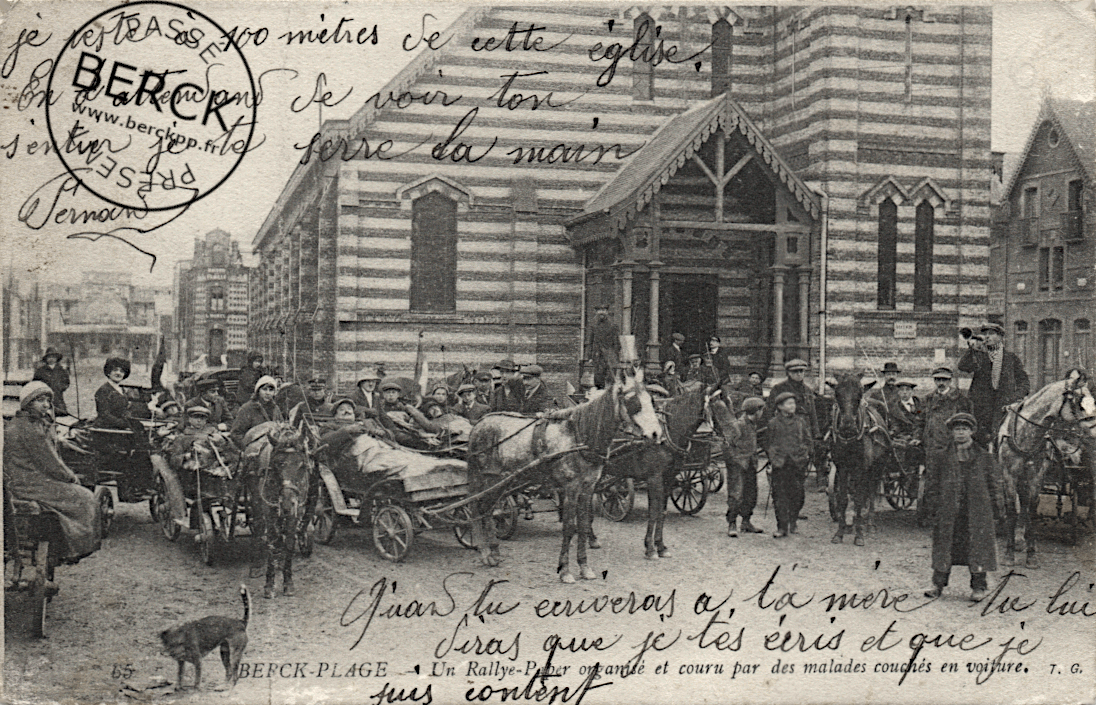 je reste à 100 mètres de cette église.
En attendant de voir ton
sentier je te serre la main
Fernand
BERCK
www.berckpp.fr
PASSÉ
PRÉSENT
Quand tu ecriveras a ta mère tu lui
diras que je tés écris et que je
suis content
65 BERCK-PLAGE - Un Rallye-Paper organisé et couru par des malades couchés en voiture. T. G.